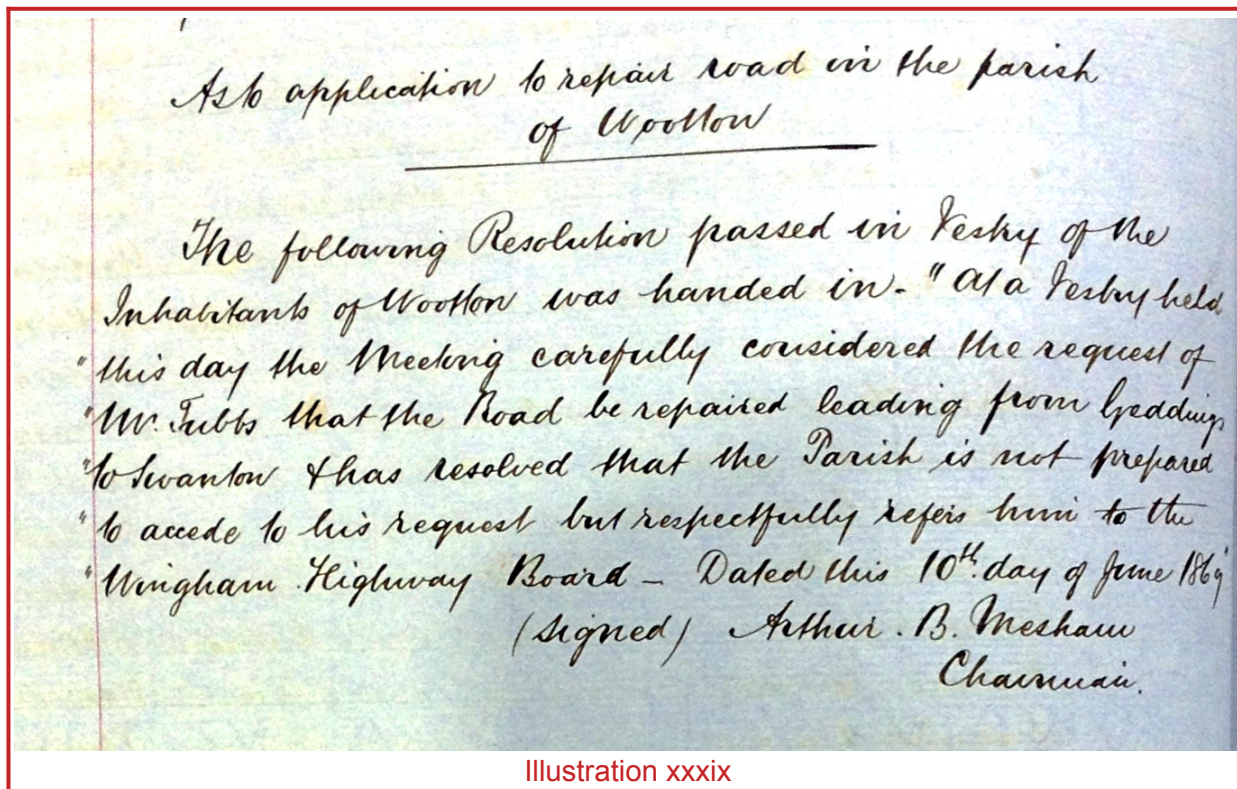 As to application to repair road in the parish
of Wootton
The following Resolution passed in Vestry of the
Inhabitants of Wootton was handed in - "At a Vestry held
"this day the Meeting carefully considered the request of
"Mr. Tubbs that the Road be repaired leading from Geddings
"to Swanton & has resolved that the Parish is not prepared
"to accede to his request but respectfully refers him to the
"Wingham Highway Board - Dated this 10th. day of June 1869"
(signed) Arthur . B. Mesham
Chairman.
Illustration xxxix